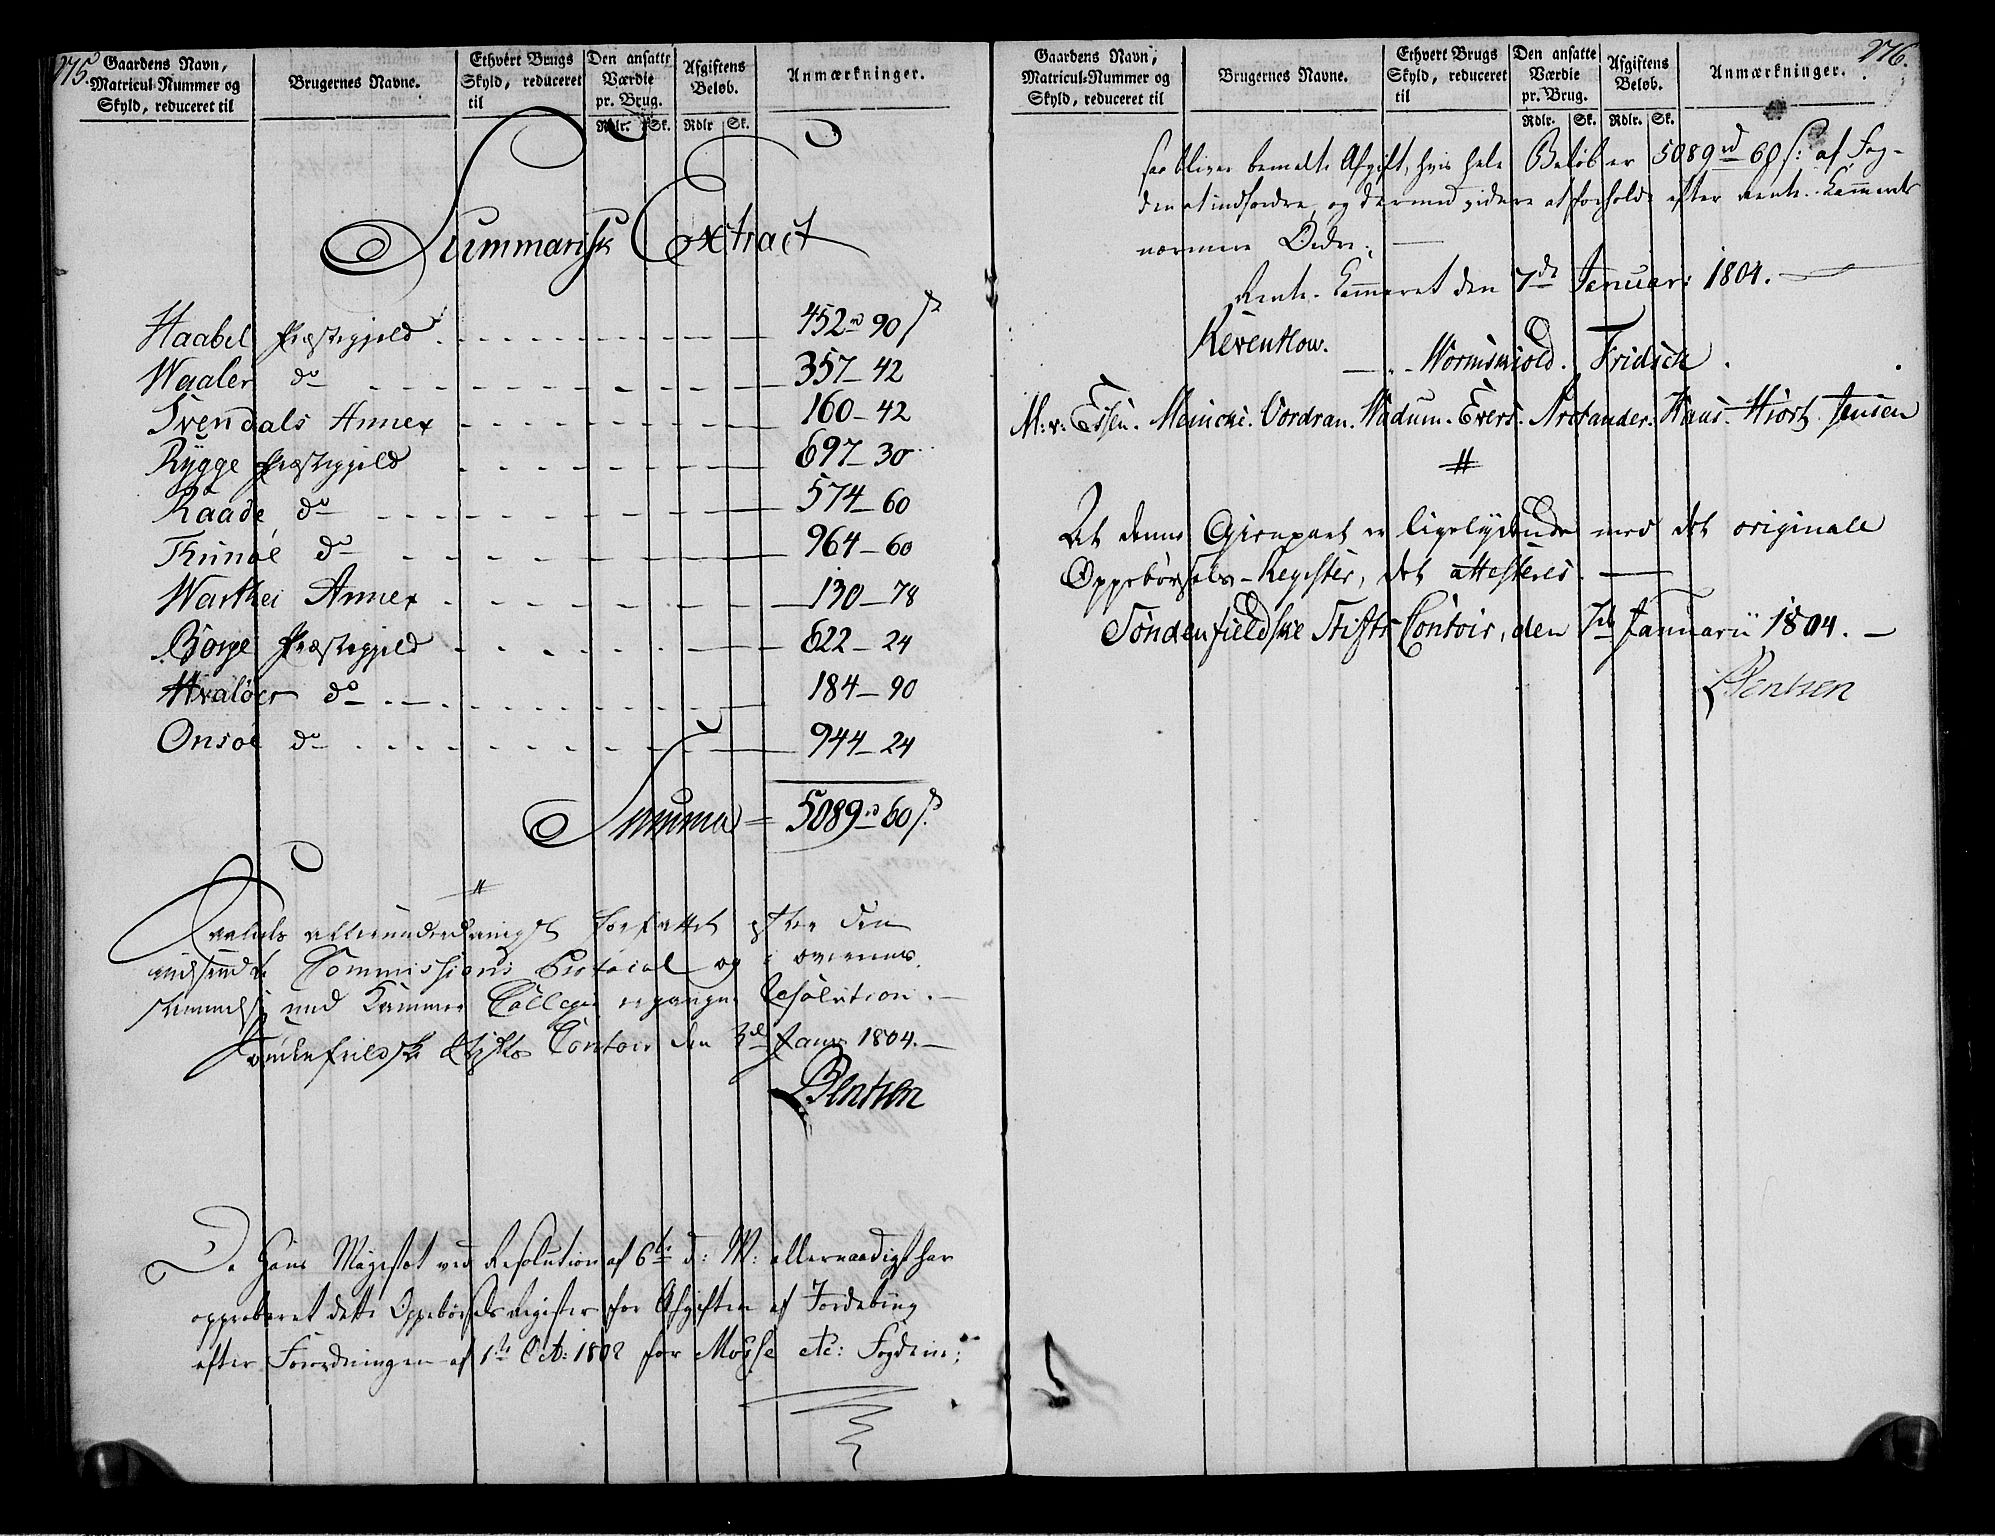 275.
Gaardens Navn, Matricul-Nummer og Skyld, reduceret til
Brugernes Navne.
Ethvert Brugs Skyld, reduceret til
Den ansatte Værdie pr. Brug.
Rdlr. Sk.
Afgiftens Beløb.
Rdlr Sk.
Anmærkninger.
Summarisk Extract
Haabel Præstegjeld 452 rd 90 s
Waaler do 357 - 42
Svendals Annex 160 - 42
Rygge Præstegjeld 697 - 30
Raade do 574 - 60
Thunøe do 964 - 60
Warthei Annex 130 - 78
Borge Præstegjeld 622 - 24
Hvaløer do 184 - 90
Onsøe do 944 - 24
Summa = 5089 rd 60 s.
Saaledes allerunderdanigst forfattet efter den
indsendte Commissions Protocol og i overeens-
stemmelse med Kammer Collegii ergangne Resolution. —
Søndenfieldske Stifts Contoir den 3de Janv 1804. —
Bentzen
Da Hans Majestæt ved Resolution af 6te d: M: allernaadigst har
approberet dette Oppebørsels Register for Afgiften af Jordebrug
efter Forordningen af 1te Oct: 1802 for Mosse etc: Fogderie;
276.
Gaardens Navn, Matricul-Nummer og Skyld, reduceret til
Brugernes Navne.
Ethvert Brugs Skyld, reduceret til
Den ansatte Værdie pr. Brug.
Rdlr. Sk.
Afgiftens Beløb.
Rdlr. Sk.
Anmærkninger.
saa bliver bemeldte Afgift, hvis hele Beløb er 5089 rd 60 s: af Fog-
den at indfordre, og dermed videre at forholde efter Rente-Kammerets
nærmere Ordre. —
Rente-Kammeret den 7de Januar: 1804. —
Reventlow.
Wormskiold. Fridsch.
M: v: Essen. Meincke. Vordran. Wadum. Evers. Arctander. Haus. Hiort. Jensen
At denne Gienpart er ligelydende med det originale
Oppebørsels-Register, det attesteres. —
Søndenfieldske Stifts Contoir, den 7de Januarii 1804. —
Bentzen